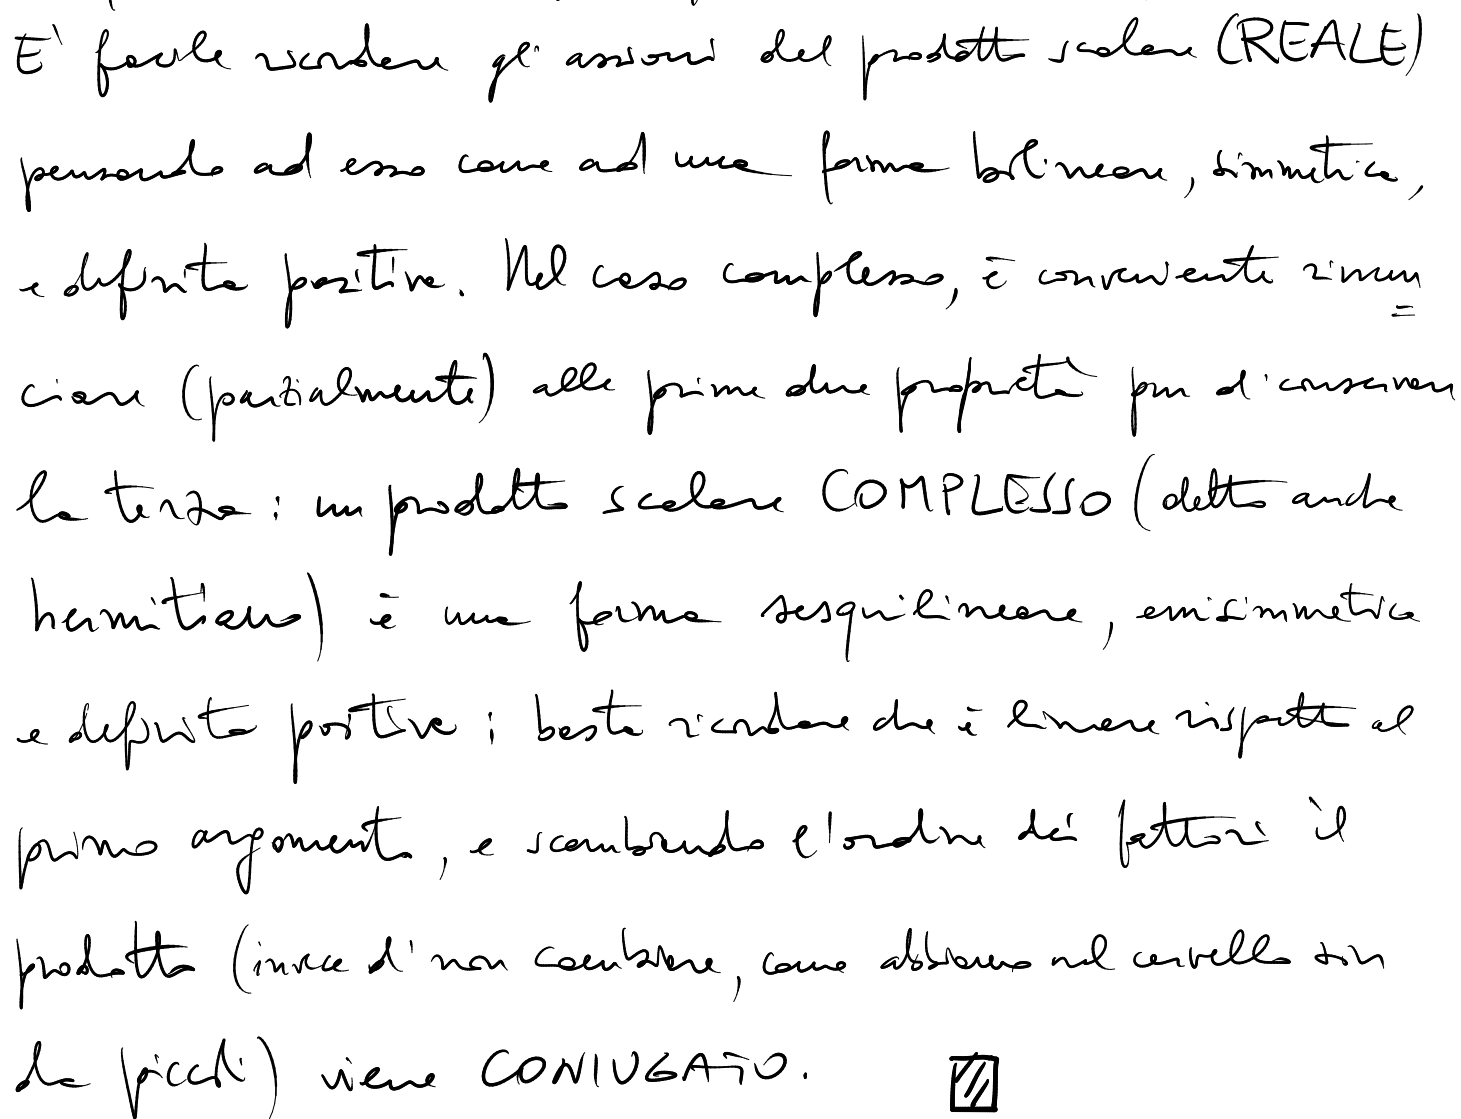 E' facile ricordare gli assiomi del prodotto scalare (REALE)
pensando ad esso come ad una forma bilineare, simmetrica,
e definita positiva. Nel caso complesso, è conveniente rinun=
ciare (parzialmente) alle prime due proprietà pur di conservare
la terza: un prodotto scalare COMPLESSO (detto anche
hermitiano) è una forma sesquilineare, emisimmetrica
e definita positiva; basta ricordare che è lineare rispetto al
primo argomento, e scambiando l'ordine dei fattori il
prodotto (invece di non cambiare, come abbiamo nel cervello sin
da piccoli) viene CONIUGATO.